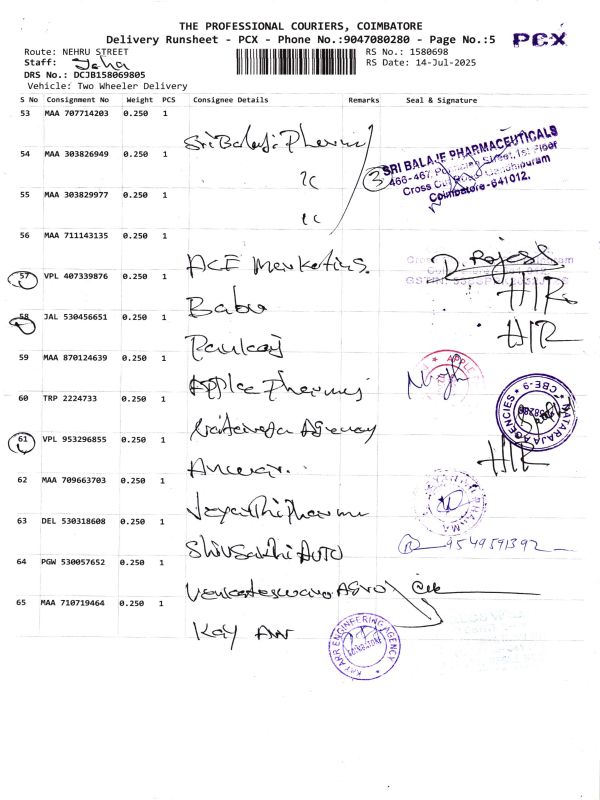 THE PROFESSIONAL COURIERS, COIMBATORE
Delivery Runsheet - PCX - Phone No.:9047080280 - Page No.:5
PCX
Route: NEHRU STREET
RS No.: 1580698
Staff:
RS Date: 14-Jul-2025
DRS No.: DCJB158069805
Vehicle: Two Wheeler Delivery
S No Consignment No Weight PCS Consignee Details Remarks Seal & Signature
53 MAA 707714203 0.250 1 Sri Balaji Pharmy
54 MAA 303826949 0.250 1 3
SRI BALAJE PHARMACEUTICALS
466-467, Street, 1st Floor
Cross Cut Road, Gandhipuram
Coimbatore-641012.
55 MAA 303829977 0.250 1
56 MAA 711143135 0.250 1 ACE Marketing. D. Rajesh
57 VPL 407339876 0.250 1 Babu H/R
58 JAL 530456651 0.250 1 H/R
59 MAA 870124639 0.250 1 Apple Pharmy
APPLE
60 TRP 2224733 0.250 1 Agency
NATARAJA AGENCIES * CBE-9 *
61 VPL 953296855 0.250 1 Anwar. H/R
62 MAA 709663703 0.250 1 Jayanthi Pharma
63 DEL 530318608 0.250 1 Shivsakthi AUTO 9549591392
64 PGW 530057652 0.250 1 Venkateswara AGRO
65 MAA 710719464 0.250 1 Kay Arr
KAY ARR ENGINEERING AGENCY